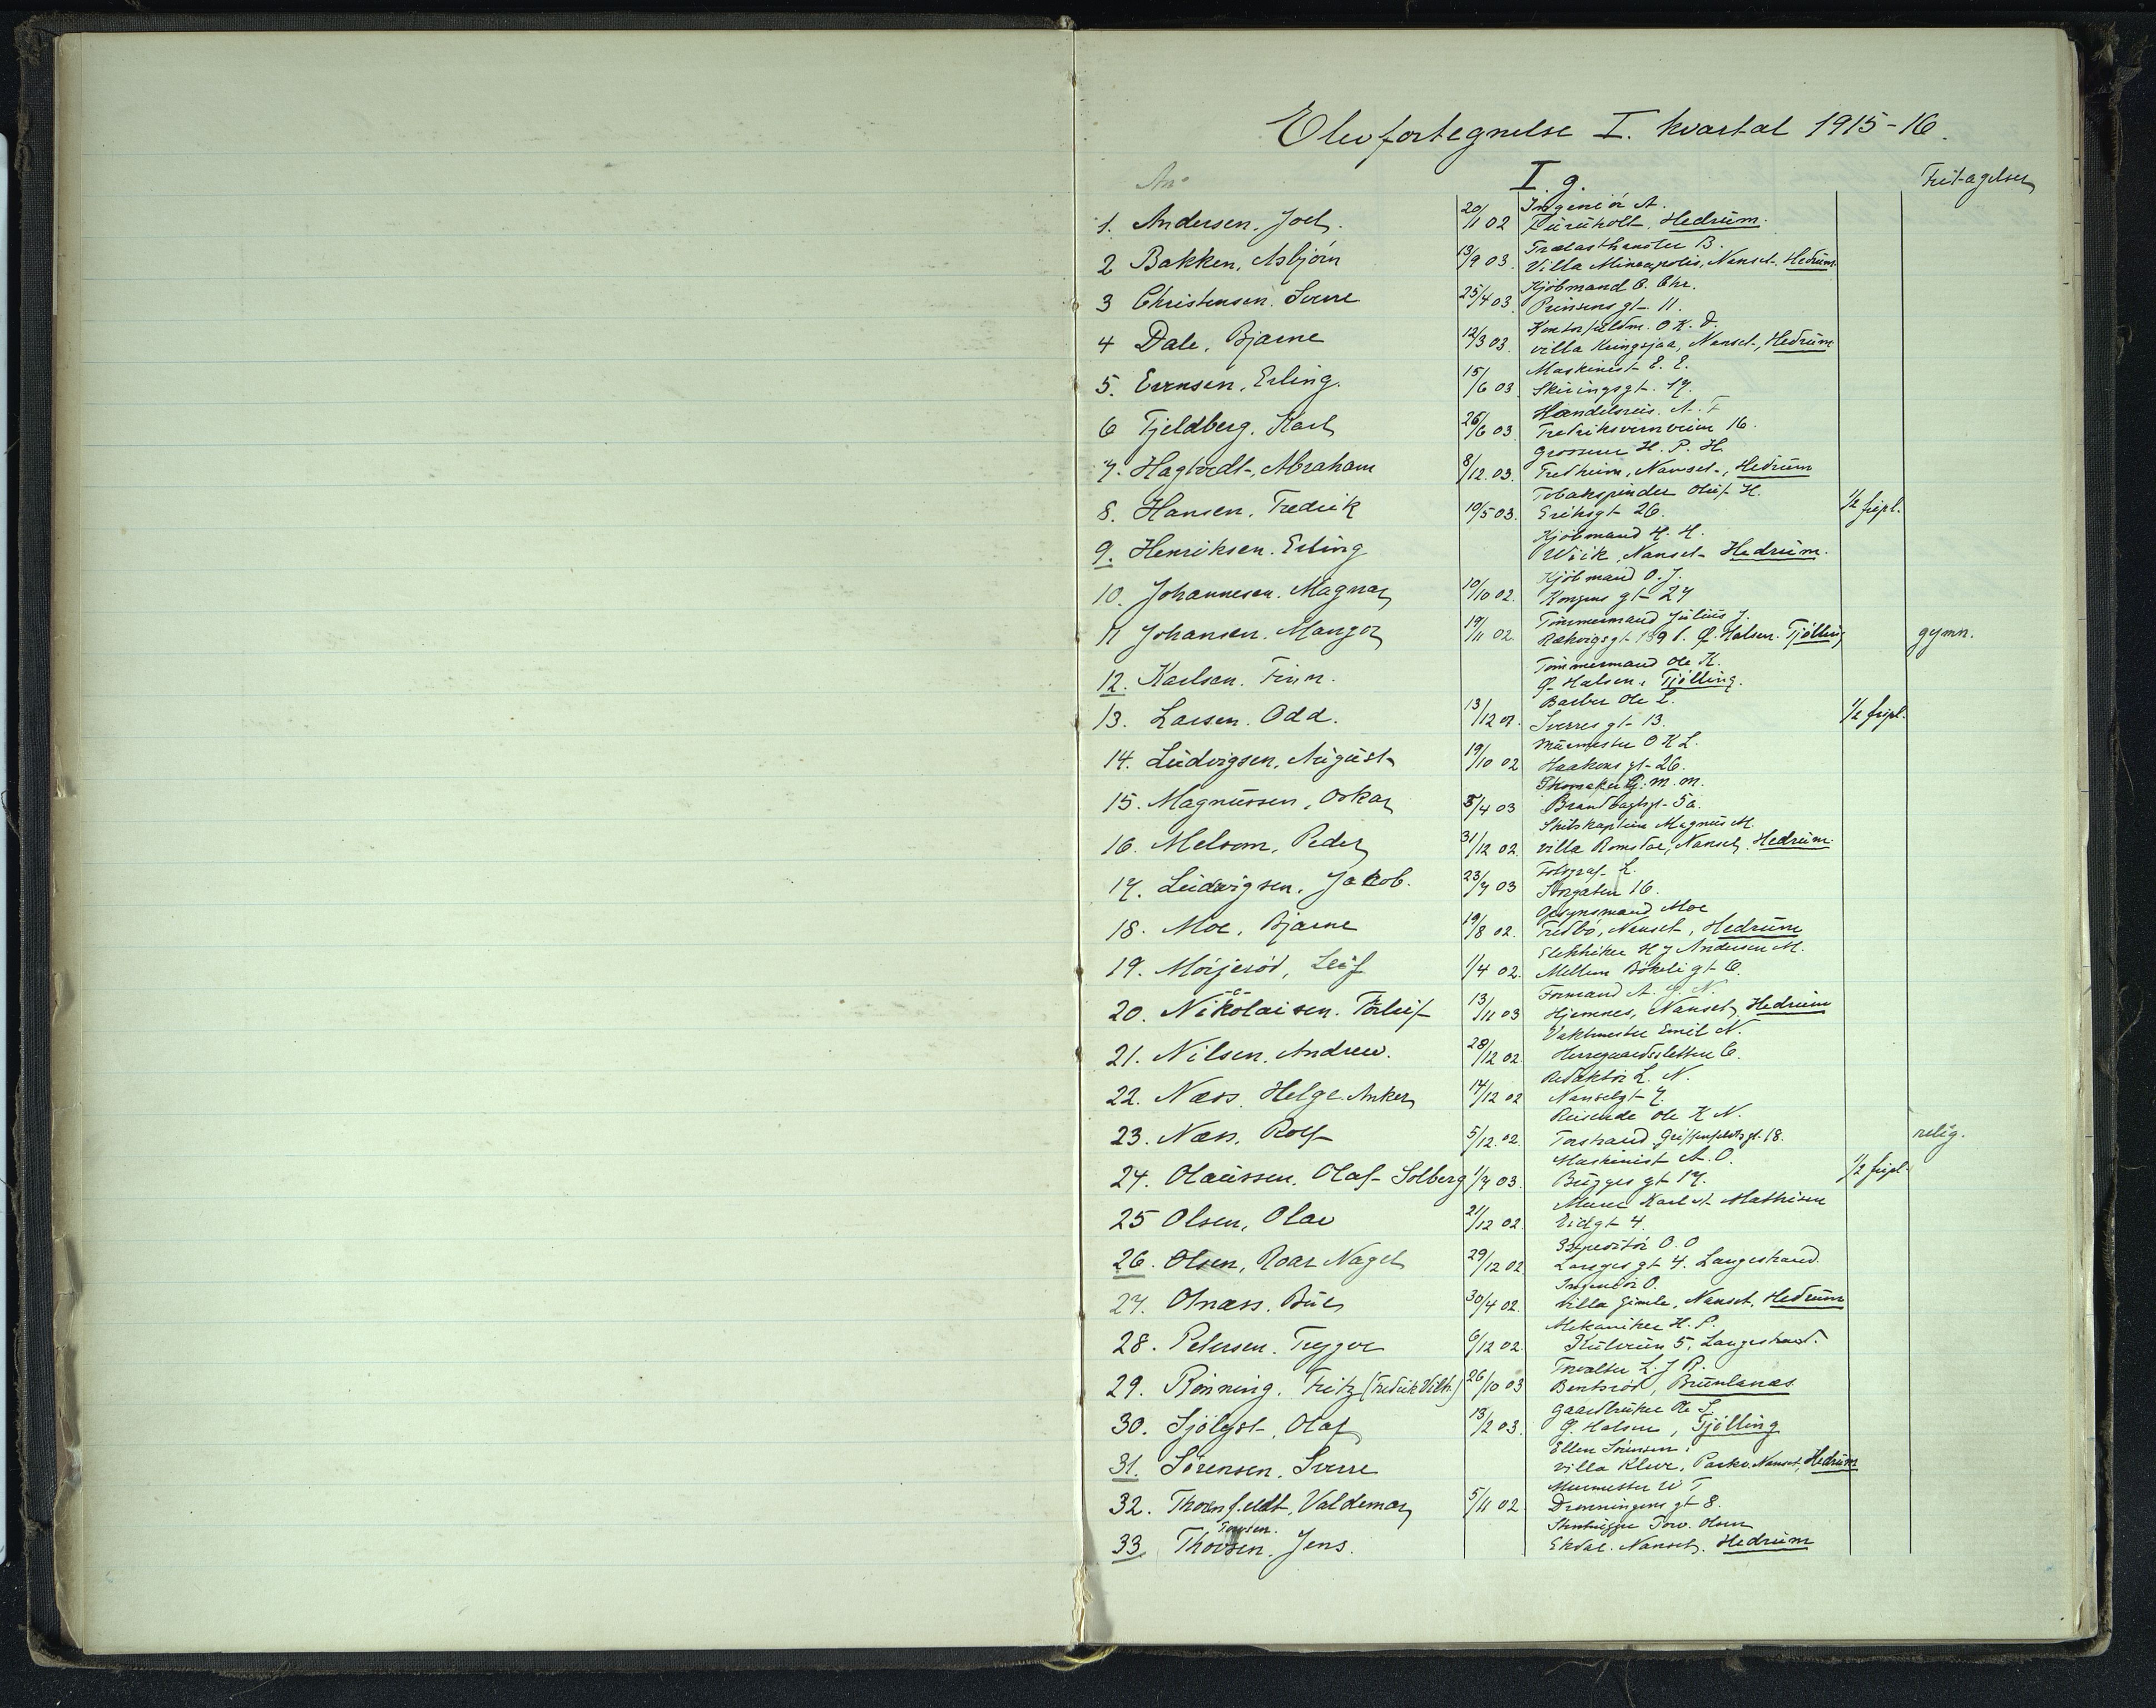 Elevfortegnelse I. kvartal 1915-16.
I. g.
Fritagelser
Ingeniör A.
1. Andersen, Joel. 20/11 02 Furuholt, Hedrum.
Trælasthandler B.
2 Bakken, Asbjörn 13/9 03. Villa Mineapolis, Nanset. Hedrum.
Kjöbmand C. Chr.
3 Christensen. Sverre 25/4 03 Prinsens gt. 11.
Kontorfuldm. O. K. D.
4 Dale, Bjarne 12/3 03. villa Kringsjaa, Nanset, Hedrum
Maskinist E. E.
5. Evensen, Erling. 15/6 03. Skiringsgt. 17.
Handelsreis. A. F
6 Fjeldberg, Karl 26/6 03. Fredriksvernveien 16.
Grosserer H. P. H.
7. Hagtvedt, Abraham 8/12. 03. Fredheim, Nanset, Hedrum
Tobakspinder Oluf H.
8. Hansen, Fredrik 10/5 03. Eriksgt 26. 1/2 fripl.
Kjöbmand H. H.
9. Henriksen. Erling Wiik, Nanset Hedrum.
Kjöbmand O. J.
10. Johannesen. Magnar 10/10 02. Kongens gt 27
Tömmermand Julius J.
11 Johansen. Mangor 19/11 02. Ö. Halsen. Tjölling gymn.
Tömmermand Ole K.
12. Karlsen. Finn. Ö. Halsen, Tjölling.
Barber Ole L.
13. Larsen. Odd. 13/12 02. Sverres gt 13. 1/2 fripl.
Murmester O K L.
14. Ludvigsen, August 19/10 02 Haakons gt 26.
M. M.
15. Magnussen, Oskar 5/4 03 Brandvagtsgt 5a.
Skibskaptein Magnus M.
16. Melsom, Peder 31/12 02. villa Romsdal, Nanset, Hedrum.
Fotograf L.
17. Ludvigsen, Jakob. 23/7 03 Storgaten 16.
Opsynsmand Moe
18. Moe, Bjarne 19/8 02. Fredbö, Nanset, Hedrum
Elektriker H J Andersen M.
19. Mörjeröd, Leif 1/4 02. Mellem Bökeli gt 6.
Formand A. G. N.
20. Nikolaisen. Torleif 13/11 03 Hjemnes, Nanset, Hedrum
Vaktmester Emil N.
21. Nilsen, Andrew. 28/12 02. Herregaardssletten 6.
Redaktör L. N.
22. Næss, Helge Anker 14/12 02 Nansetgt 7.
Reisende Ole K N.
23. Næss, Rolf 5/12. 02. Torstrand Griffenfeldts gt. 18. relig.
Maskinist A. O.
24. Olaussen. Olaf Solberg 1/7 03. Bugges gt 17. 1/2 fripl.
Murer Karl A. Mathisen
25 Olsen, Olav 21/12 02. Eidgt 4.
Expeditör O. O
26. Olsen, Roar Nagel 29/12 02. Langes gt 4. Langestrand.
Ingeniör O.
27. Olnæss. 30/4 02. villa Gimle, Nanset, Hedrum
Mekaniker H. P.
28. Petersen. Trygve 6/12 02. Kulveien 5, Langestrand.
Forvalter L. J R.
29. Rönning. Fritz (Fredrik Vilh.) 26/10 03 Bentsröd, Brunlanes
Gaardbruker Ole S.
30. Sjölyst, Olaf 13/2 03. Ö. Halsen, Tjölling
Ellen Sörensen.
31. Sörensen, Sverre Villa Kleve, Parkv. Nanset, Hedrum
Murmester W T
32. Thorenfeldt, Valdemar 5/11 02. Dronningens gt 8.
Torv. Olsen
33. Thovsen. Jens. Ekdal. Nanset. Hedrum